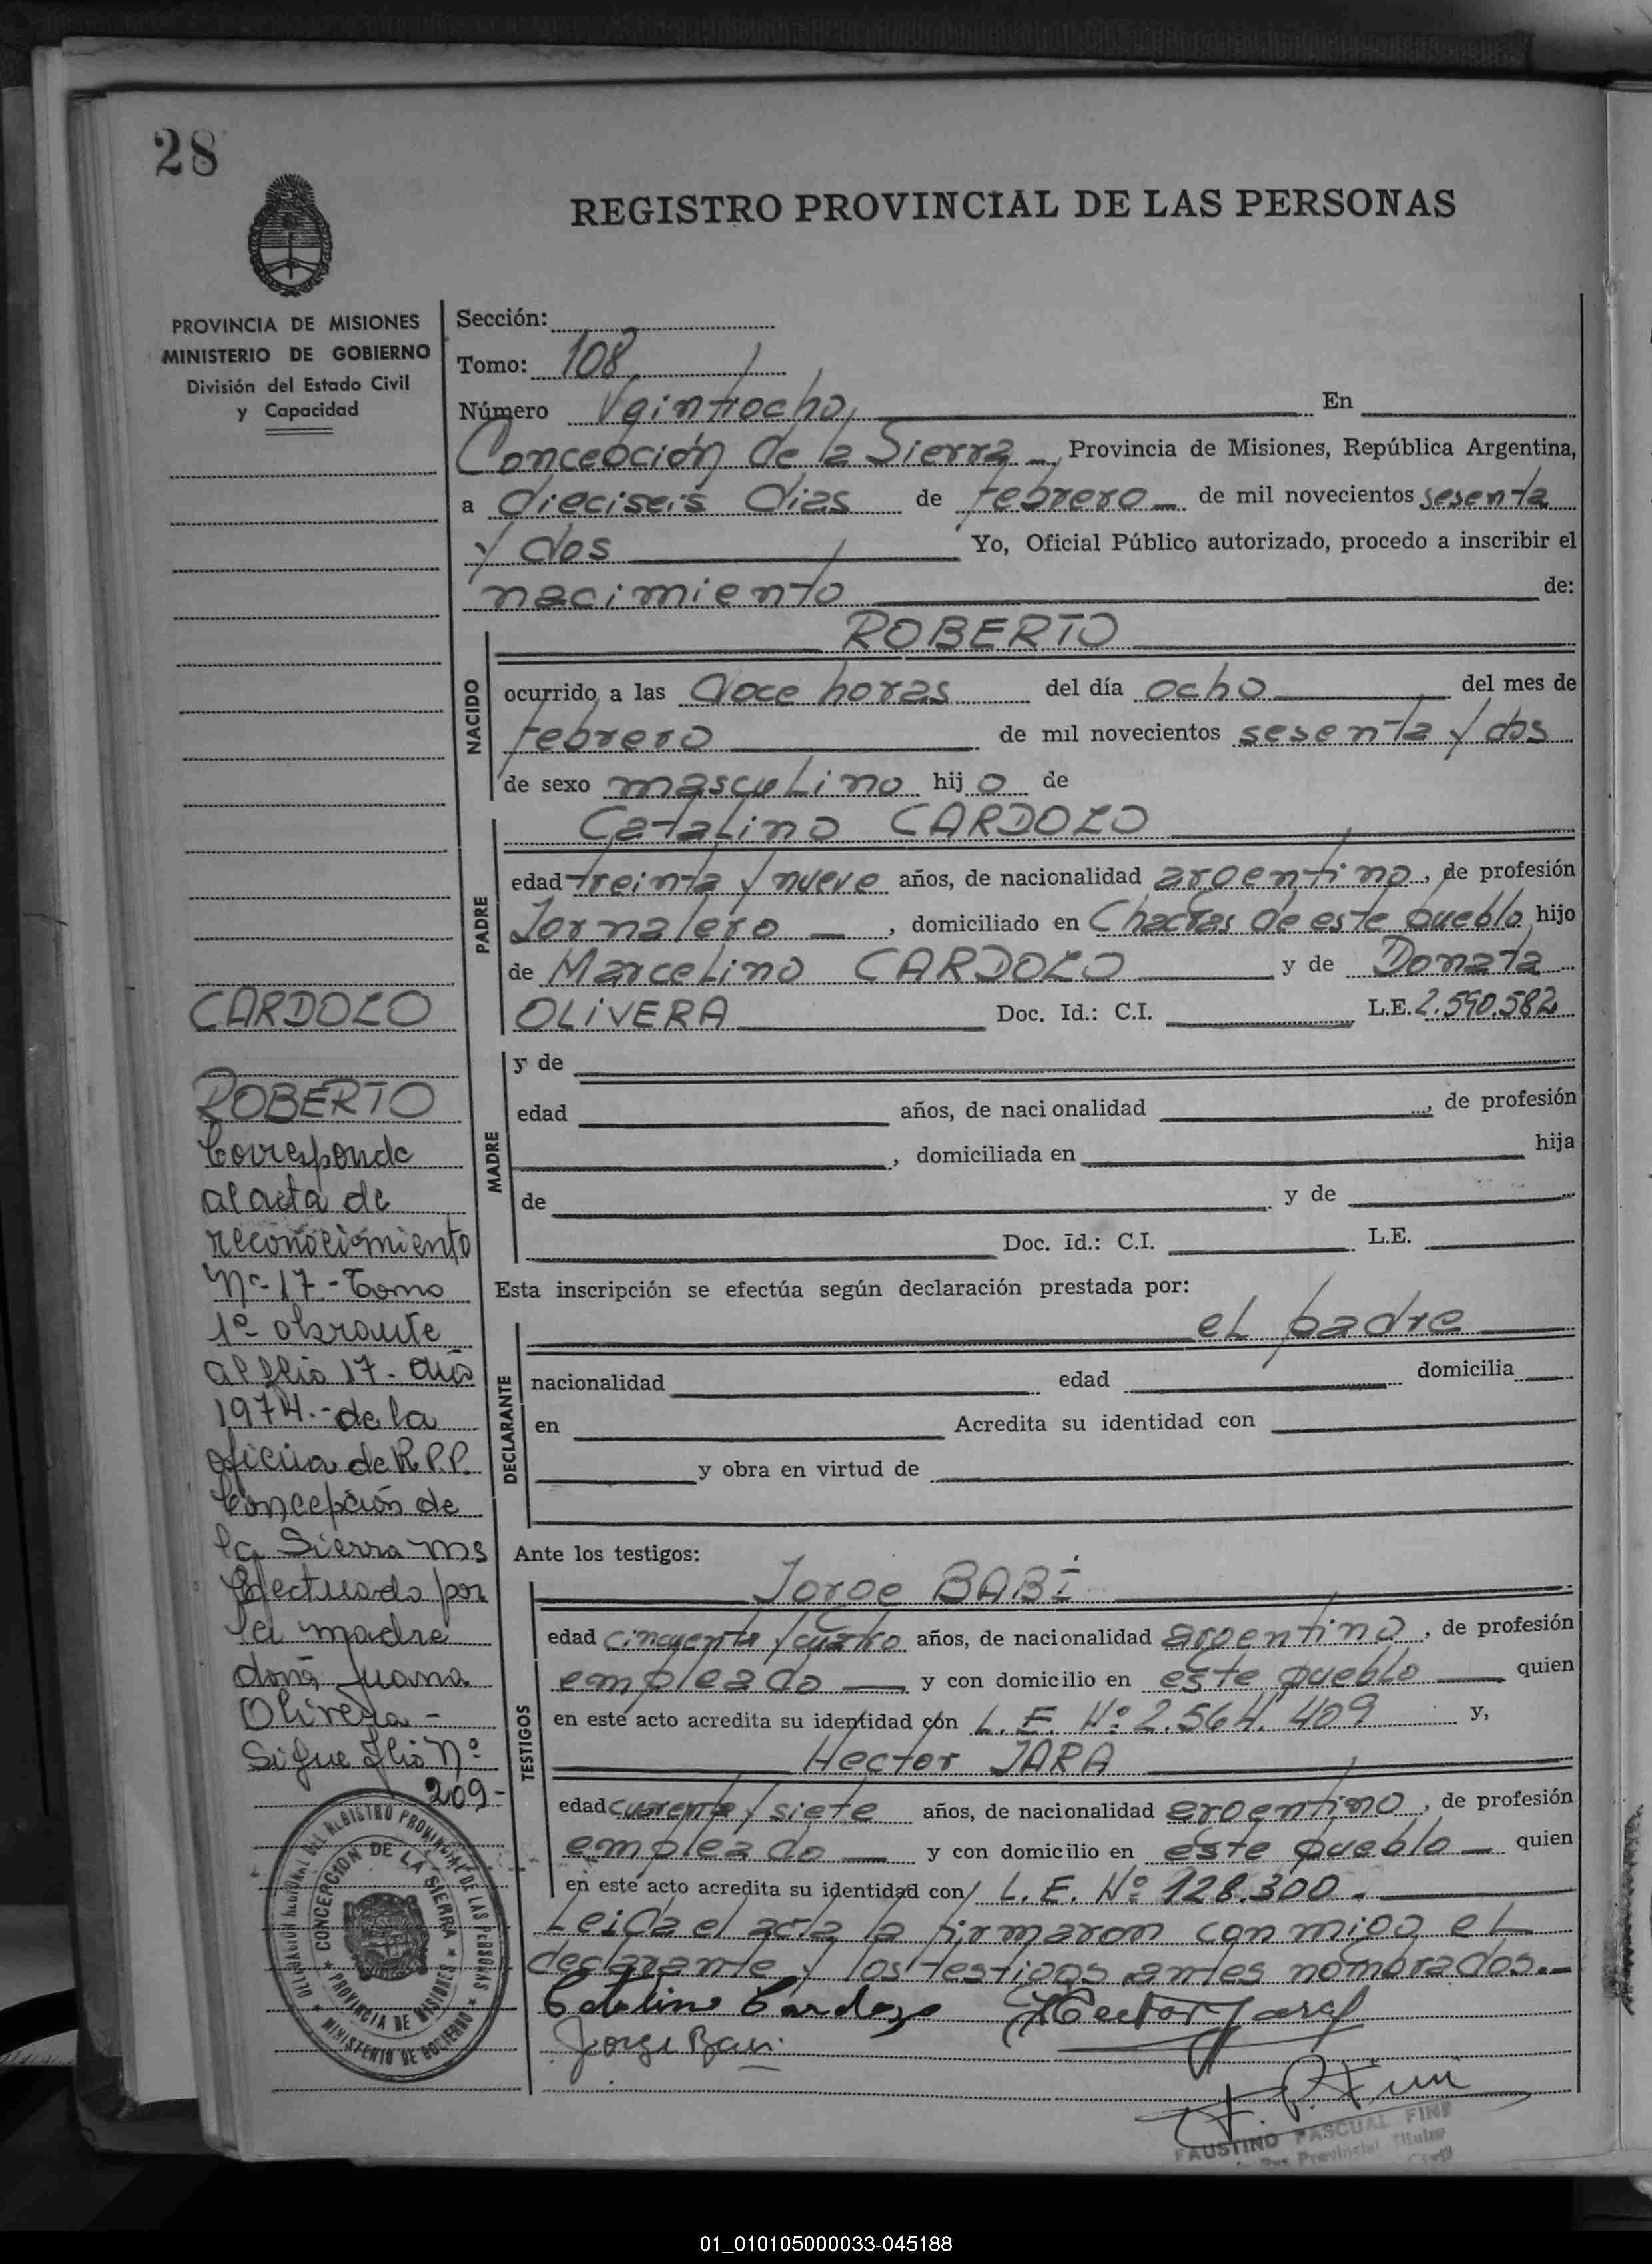 28
REGISTRO PROVINCIAL DE LAS PERSONAS
PROVINCIA DE MISIONES
MINISTERIO DE GOBIERNO
División del Estado Civil
y Capacidad
Sección:
Tomo: 108
Número Veintiocho, En
Concepción de la Sierra, Provincia de Misiones, República Argentina,
a dieciseis dias de febrero de mil novecientos sesenta
y dos Yo, Oficial Público autorizado, procedo a inscribir el
nacimiento de:
NACIDO
ROBERTO
ocurrido a las doce horas del día ocho del mes de
febrero de mil novecientos sesenta y dos
de sexo masculino hij o de
PADRE
Catalino CARDOZO
edad treinta y nueve años, de nacionalidad argentino, de profesión
Jornalero, domiciliado en Chacras de este pueblo hijo
de Marcelino CARDOZO y de Donata
OLIVERA Doc. Id.: C.I. L.E. 2.590.582
MADRE
y de
edad años, de nacionalidad , de profesión
, domiciliada en hija
de y de
Doc. Id.: C.I. L.E.
Esta inscripción se efectúa según declaración prestada por:
DECLARANTE
el padre
nacionalidad edad domicilia
en Acredita su identidad con
y obra en virtud de
Ante los testigos:
TESTIGOS
Jorge BABI
edad cincuenta y cuatro años, de nacionalidad argentino, de profesión
empleado y con domicilio en este pueblo quien
en este acto acredita su identidad con L. E. Nº 2.564.409 y,
Hector JARA
edad cuarenta y siete años, de nacionalidad argentino, de profesión
empleado y con domicilio en este pueblo quien
en este acto acredita su identidad con L. E. Nº 128.300.
Leida el acta la firmaron con migo el
declarante y los testigos antes nombrados.
Catalino Cardozo Hector Jara
Jorge Babi
FAUSTINO PASCUAL FINI
Provincial Titular
CARDOZO
ROBERTO
Corresponde
al acta de
reconocimiento
Nº 17.- Tomo
1º obrante
al flio 17- año
1974.- de la
oficina de R.P.P.
Concepción de
la Sierra Ms
Efectuado por
la madre
doña Juana
Olivera -
Sigue flio Nº
209-
DEL REGISTRO PROVINCIAL DE LAS PERSONAS
CONCEPCION DE LA SIERRA
PROVINCIA DE MISIONES
MINISTERIO DE GOBIERNO
01_010105000033-045188